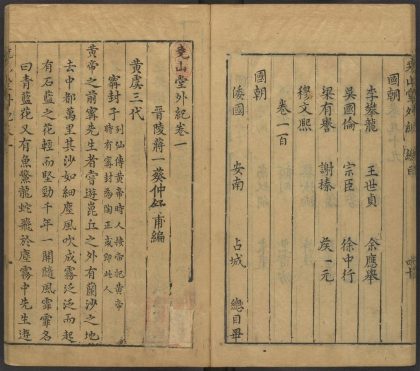 國朝
李攀龍 王世貞 余應舉
吳國倫 宗臣 徐中行
梁有譽 謝榛 矦一元
穆文熙
卷一百
國朝
倭國 安南 占城 總目畢
堯山堂外紀卷一
晉陵蔣一葵仲舒甫編
黃虞三代
甯封子
列仙傳黃帝時人按帝記黃帝
時有甯封為陶正或即此人
黃帝之前甯先生者嘗遊崑丘之外有蘭沙之地
去中都萬里其沙如細塵風吹成霧泛泛而起
有石藍之花輕而堅勁千年一開隨風霏霏名
曰青藍花又有魚鱉龍蛇飛於塵霧中先生遊